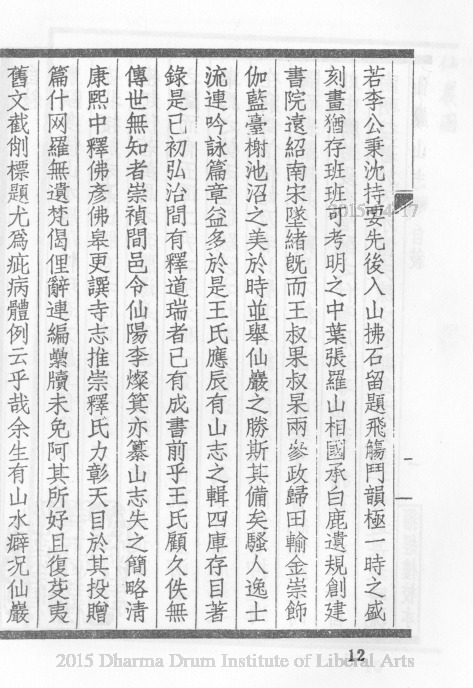 若李公秉沈持要先後入山拂石留題飛觴鬥韻極一時之盛
刻畫猶存班班可考明之中葉張羅山相國承白鹿遺規創建
書院遠紹南宋墜緒旣而王叔果叔杲兩參政歸田輸金崇飾
伽藍臺榭池沼之美於時並舉仙巖之勝斯其備矣騷人逸士
流連吟詠篇章益多於是王氏應辰有山志之輯四庫存目著
錄是已初弘治間有釋道瑞者已有成書前乎王氏顧久佚無
傳世無知者崇禎間邑令仙陽李燦箕亦纂山志失之簡略清
康熙中釋佛彥佛皋更譔寺志推崇釋氏力彰天目於其投贈
篇什网羅無遺梵偈俚辭連編纍牘未免阿其所好且復芟夷
舊文截削標題尤爲疵病體例云乎哉余生有山水癖況仙巖
12
2015 Dharma Drum Institute of Liberal Arts